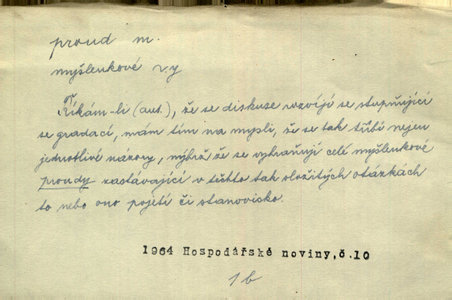 proud m.
myšlenkové v-y
Říkám-li (aut.), že se diskuse rozvíjí se stupňující
se gradací, mám tím na mysli, že se tak tříbí nejen
jednotlivé názory, nýbrž že se vyhraňují celé myšlenkové
proudy zastávající v těchto tak složitých otázkách
to nebo ono pojetí či stanovisko.
1964 Hospodářské noviny,č.10
1b